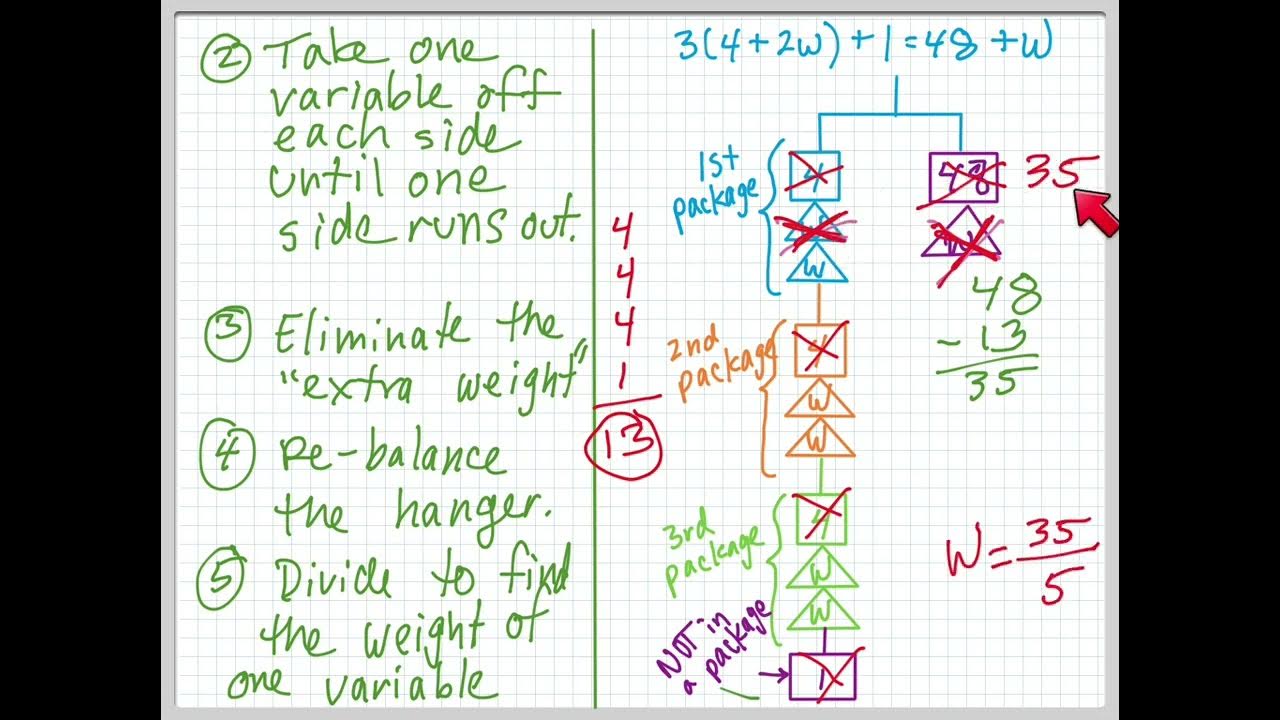 ② Take one
variable off
each side
until one
side runs out.
③ Eliminate the
"extra weight"
④ Re-balance
the hanger.
⑤ Divide to find
the weight of
one variable
4
4
4
1
13
3(4+2w)+1=48+w
1st
package
4
w
2nd
package
4
w
w
3rd
package
4
w
w
NOT in
a package
1
48
35
w
48
-13
35
W=35/5